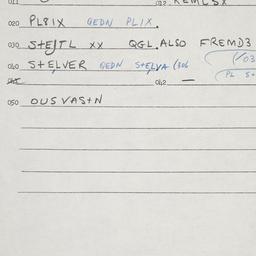 011 032 REMLSX
020 PL8IX GEDN PLIX.
030 S+E/TL XX QGL. ALSO FREMD3
(/03
040 S+ELVER GEDN S+ELVA (306
PL S+
042 —
050 OUSVAS+N